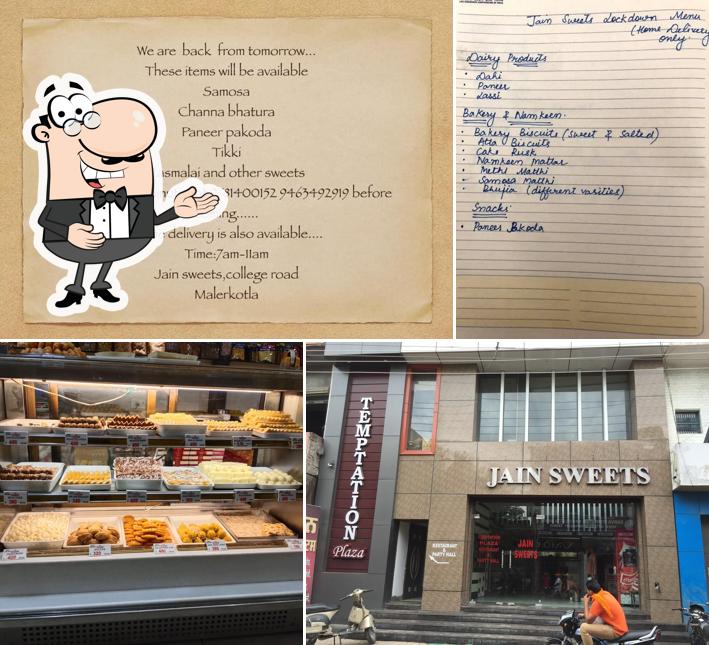 We are back from tomorrow...
These items will be available
Samosa
Channa bhatura
Paneer pakoda
Tikki
asmalai and other sweets
81400152 9463492919 before
ng......
delivery is also available....
Time:7am-11am
Jain sweets,college road
Malerkotla
Jain Sweets Lockdown Menu
(Home Delivery
only.
Dairy Products
• Dahi
• Paneer
• Lassi
Bakery & Namkeen.
• Bakery Biscuits (Sweet & Salted)
• Atta Biscuits
• Cake Rusk
• Namkeen Mattar
• Methi Matthi
• Samosa Matthi
• Bhujia (different varities)
Snacks:
• Paneer Pakoda
TEMPTATION
Plaza
JAIN SWEETS
RESTAURANT
&
PARTY HALL
TEMPTATION
PLAZA
RESTAURANT
&
PARTY HALL
JAIN
SWEETS